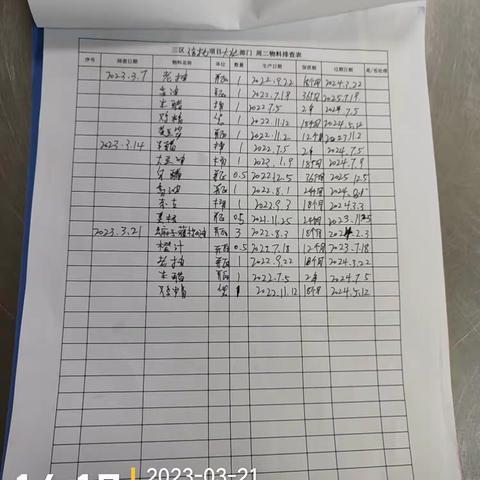 三区 项目 部门 周二物料排查表
序号 排查日期 物料名称 单位 数量 生产日期 保质期 过期日期 是/否处理
2023.3.7 老抽 瓶 1 2022.9.22 18个月 2024.3.22
瓶 1 2022.7.18 36个月 2025.7.19
米醋 1 2022.7.5 2年 2024.7.5
鸡精 袋 1 2022.11.12 18个月 2024.5.12
1 2022.11.2 12个月
2023.3.14 米醋 1 2022.7.5 2年 2024.7.5
1 2023.1.9 18个月 2024.7.9
白醋 瓶 0.5 2022.12.5 36个月 2025.12.5
瓶 1 2022.8.1 24个月 2024.8.1
1 2022.9.3 18个月 2024.3.3
瓶 0.5 2021.11.25 24个月 2023.11.25
2023.3.21 瓶 3 2022.8.3 18个月 2024.2.3
橙汁 瓶 0.5 2022.7.18 12个月 2023.7.18
老抽 瓶 1 2022.9.22 18个月 2024.3.22
米醋 瓶 1 2022.7.5 2年 2024.7.5
鸡精 袋 1 2022.11.12 18个月 2024.5.12
2023-03-21